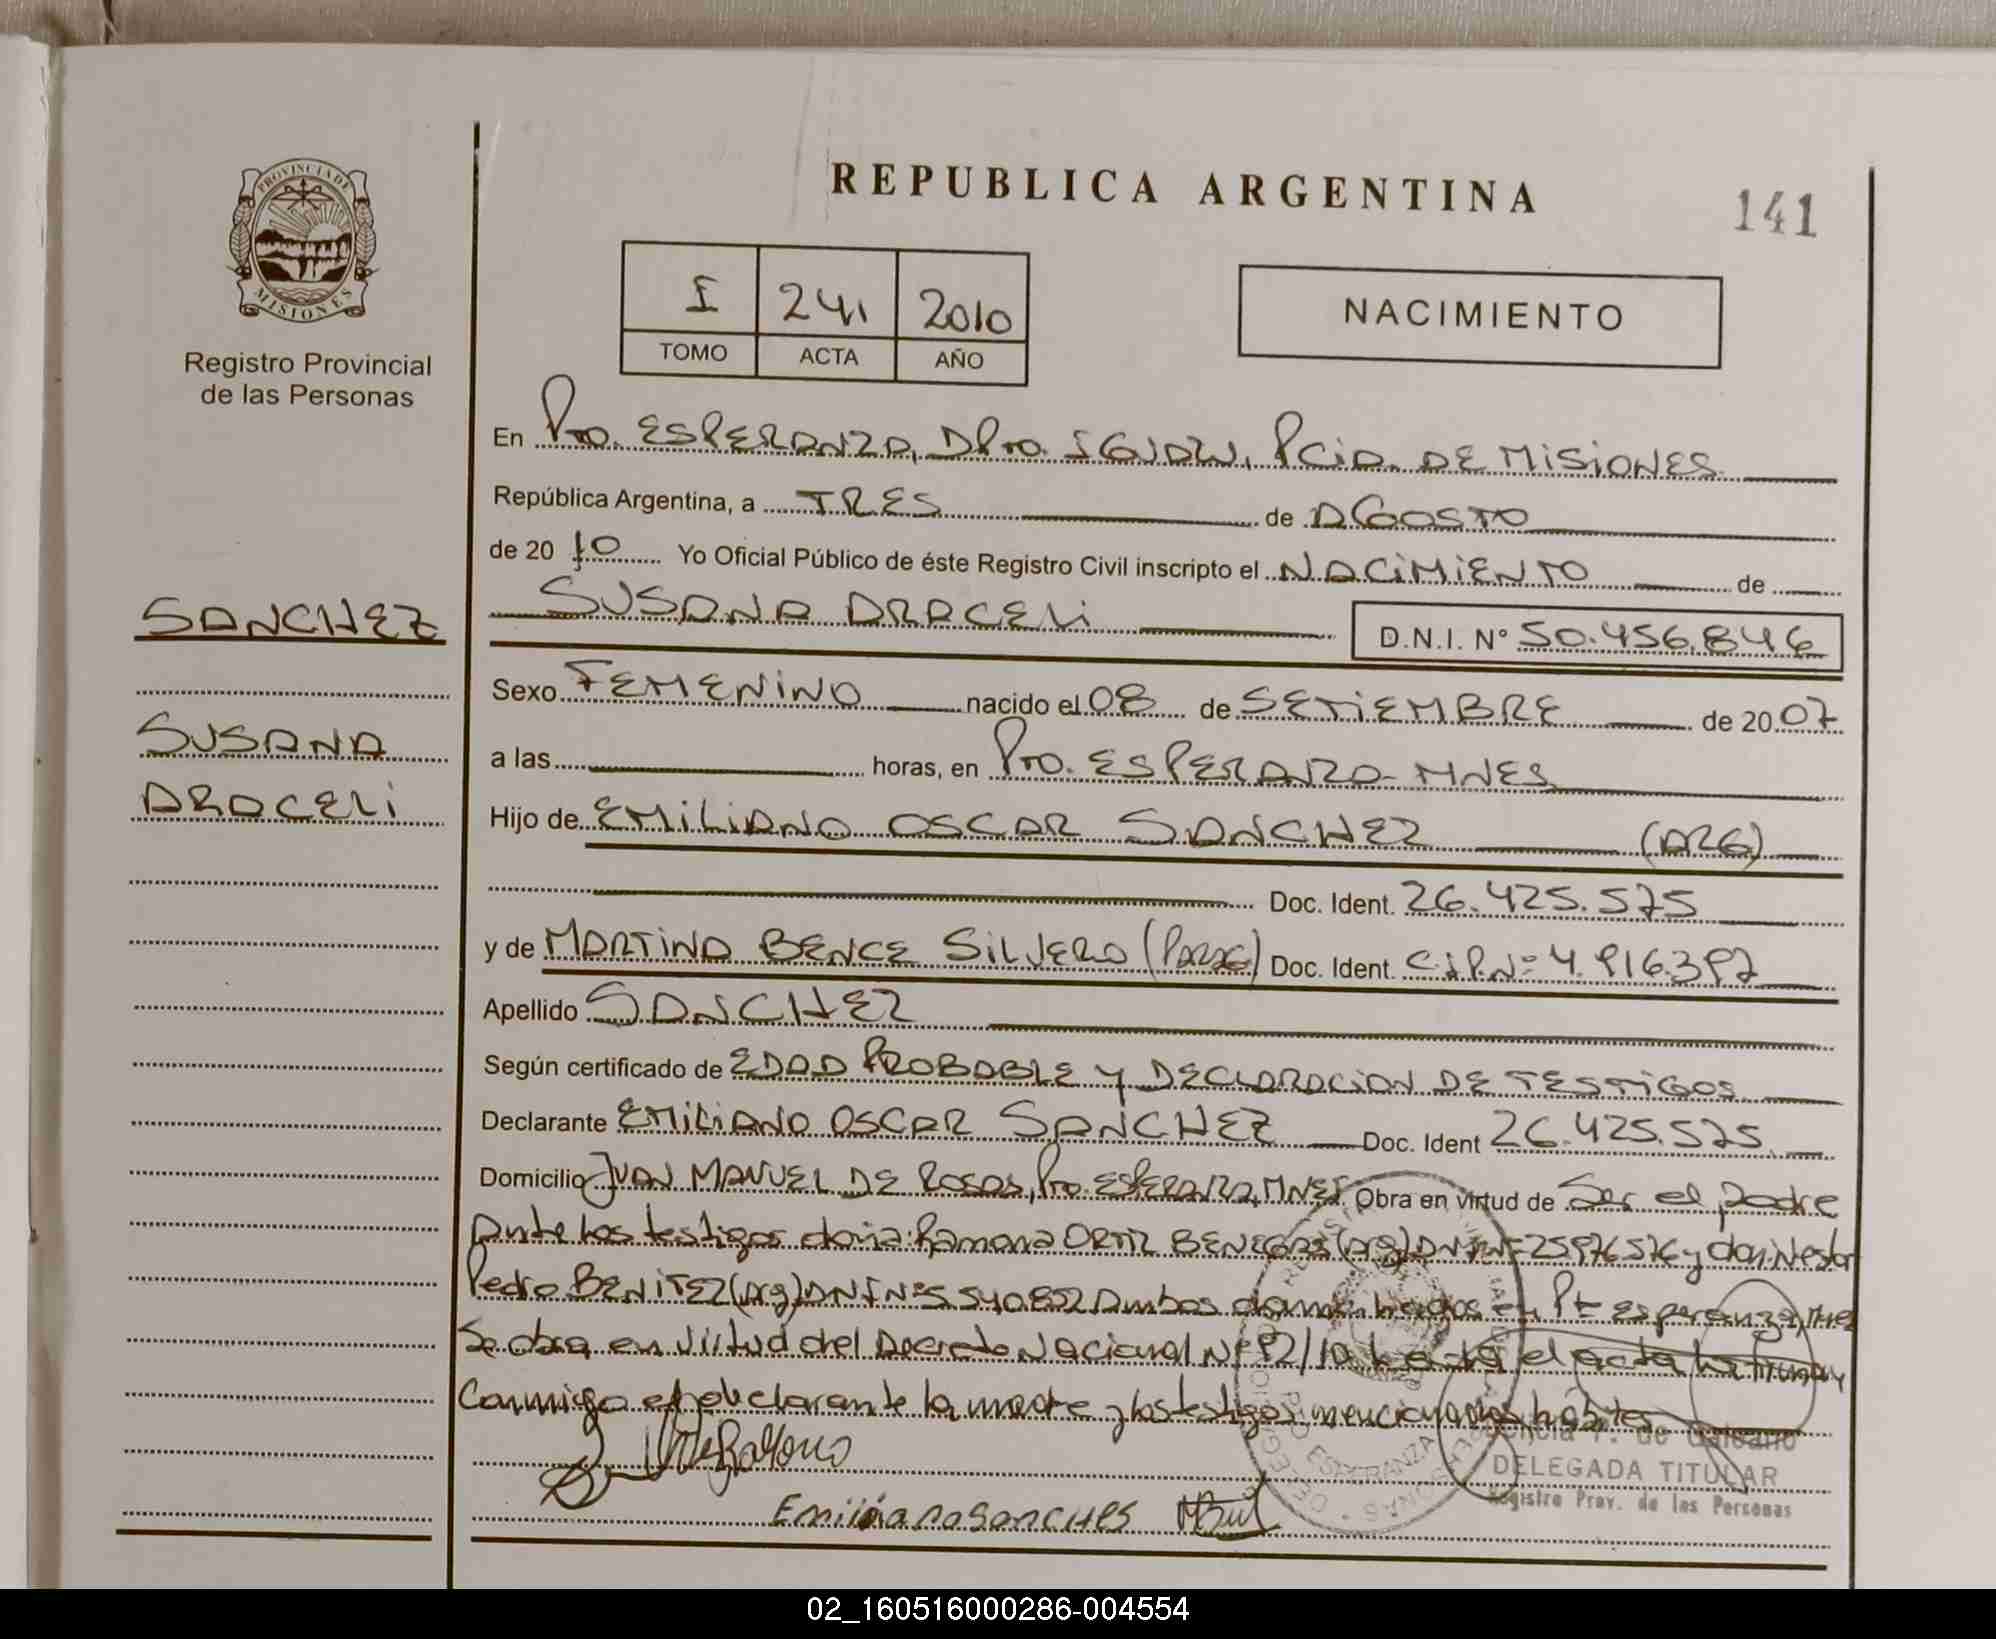 PROVINCIA DE
MISIONES
Registro Provincial
de las Personas
REPUBLICA ARGENTINA
141
I 241 2010
TOMO ACTA AÑO
NACIMIENTO
En Pto. ESPERANZA, DPTO. IGUAZU, PCIA. DE MISIONES
República Argentina, a TRES de AGOSTO
de 2010 Yo Oficial Público de éste Registro Civil inscripto el NACIMIENTO de
SUSANA ARACELI D.N.I. N° 50.456.846
SANCHEZ
SUSANA
ARACELI
Sexo FEMENINO nacido el 08 de SETIEMBRE de 2007
a las horas, en Pto. ESPERANZA - MNES
Hijo de EMILIANO OSCAR SANCHEZ (ARG)
Doc. Ident. 26.425.575
y de MARTINA BENCE SILVERO (PARAG) Doc. Ident. C.I.P.N° 4.916.397
Apellido SANCHEZ
Según certificado de EDAD PROBABLE Y DECLARACION DE TESTIGOS
Declarante EMILIANO OSCAR SANCHEZ Doc. Ident 26.425.575
Domicilio JUAN MANUEL DE ROSAS, Pto. ESPERANZA, MNES Obra en virtud de Ser el padre
Ante los testigos doña: Ramona ORTIZ BENEGAS (arg) DNI N° 25.976.576 y don: Nestor
Pedro BENITEZ (arg) DNI N° 5.540.852 Ambos domiciliados en Pto Esperanza, Mnes
Se obra en virtud del Decreto Nacional N° 92/10 Leida el acta la firman
Conmigo el declarante la madre y los testigos mencionados habiles
Emiliano SancHes
DELEGADA TITULAR
Registro Prov. de las Personas
02_160516000286-004554